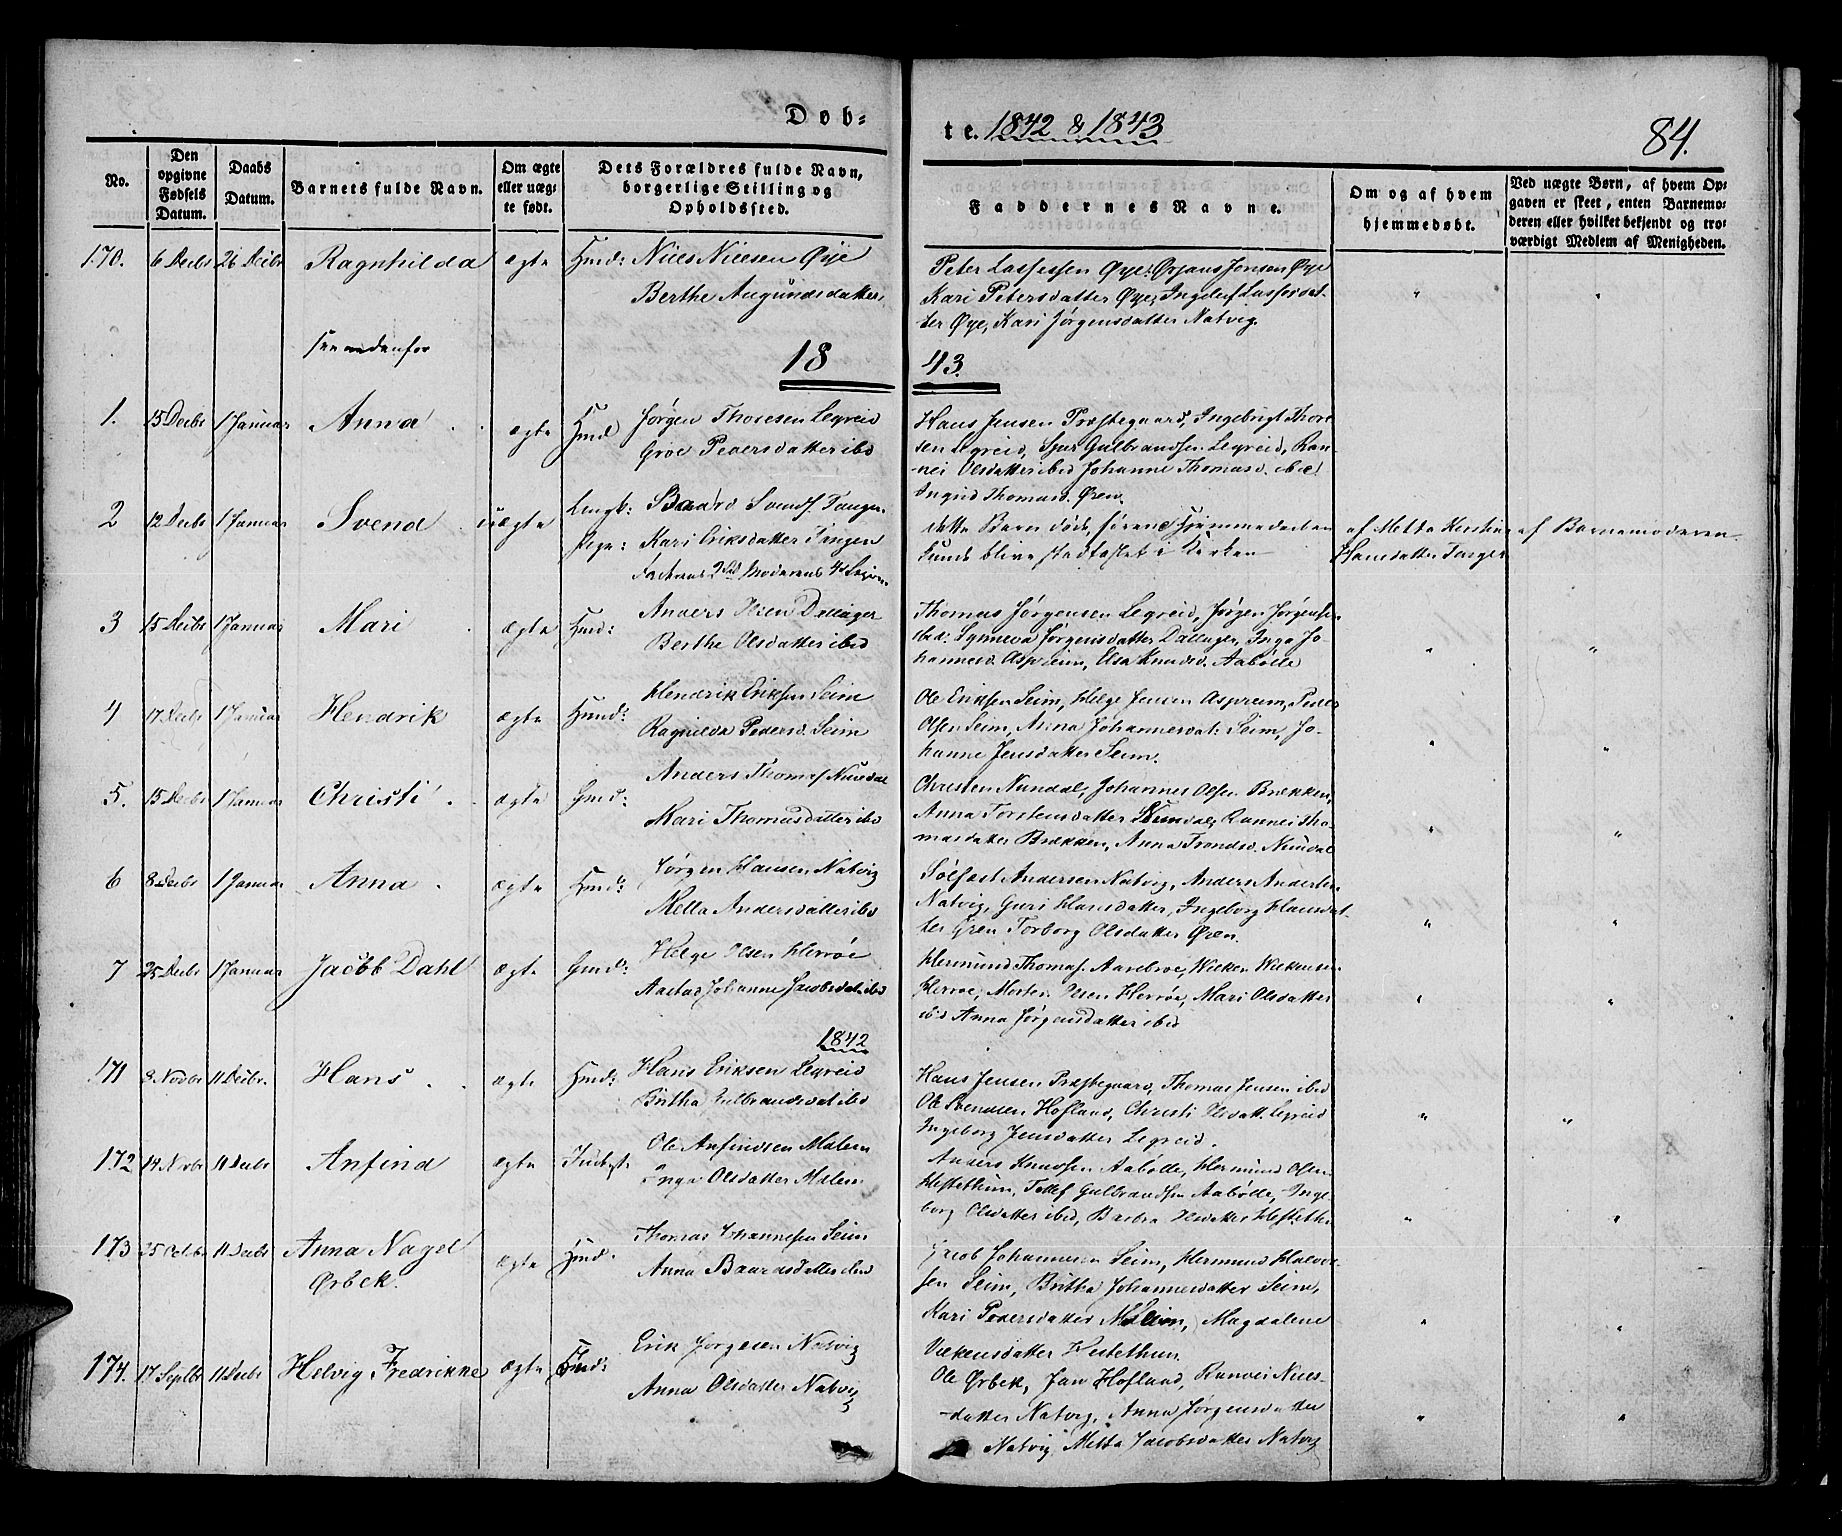 Dob=
te. 1842 & 1843
84.
No.
Den opgivne Fødsels Datum.
Daabs Datum.
Barnets fulde Navn.
Om ægte eller uægte født.
Dets Forældres fulde Navn, borgerlige Stilling og Opholdssted.
Faddernes Navne.
Om og af hvem hjemmedøbt.
Ved uægte Børn, af hvem Opgaven er skeet, enten Barnemoderen eller hvilket bekjendt og troværdigt Medlem af Menigheden.
170. 6 Decbr 26 Decbr Ragnhilda ægte Huusmd: Niels Nielsen Øye
Berthe Augundsdatter
Peter Lassesen Øye, Ørjans Jonsen Øye
Kari Petersdatter Øye, Ingelef Lassesdat-
ter Øye, Kari Jørgensdatter Natvig.
see nedenfor
1843.
1. 15 Decbr 1 Januar Anna ægte Jørgen Thoresen Legreid
Groe Pedersdatter ibd
Hans Jensen Præstegaard, Ingebrigt Thore-
sen Legreid, Sjur Gulbrandsen Legreid, Ran-
nei Olsdatter ibed Johanne Thomasd. ibed
Ingrid Thomasd. Øren.
2 12 Decbr 1 Januar Svend uægte Baard Svends. Tangen
Kari Eriksdatter Tangen
Faderens 2det Moderens 4de
dette Barn døde, førend Hjemmedaaben
kunde blive stadfæstet i Kirken
af Metta Kirstine
Hansdatter
af Barnemoderen
3 15 Decbr 1 Januar Mari ægte Anders Olsen Dallager
Berthe Olsdatter ibed
Thomas Jørgensen Legreid, Jørgen Jørgensen
ibed: Synneva Jørgensdatter Dallager, Inga Jo-
hannesd. Aspreim, Elsa Knudsd. Aabølle
4 17 Decbr 1 Januar Hendrik ægte Hendrik Eriksen Seim
Ragnilda Pedersd. Seim
Ole Eriksen Seim, Helge Jensen Aspreim, Peder
Olsen Seim, Anna Johannesdat: Seim, Jo-
hanne Jensdatter Seim.
5. 15 Decbr 1 Januar Christi ægte Anders Thomas. Nundal
Mari Thomasdatter ibd
Christen Nundal, Johannes Olsen Brækken,
Anna Torstensdatter Nundal, Rannei Tho-
masdatter Brækken, Anna Trondsd. Nundal
6 8 Decbr 1 Januar Anna ægte Jørgen Hansen Natvig
Metta Andersdatter ibd
Sølfast Andersen Natvig, Anders Andersen
Natvig, Guri Hansdatter, Ingeborg Hansdat-
ter Øren Torborg Olsdatter Øren.
7 25 Decbr 1 Januar Jacob Dahl ægte Helge Olsen Herrøe
Johanne Jacobsdat. ibd
Hermund Thomas. Aarebroe, Wilken Wilkensen
Herrøe, Morten Olsen Herrøe, Mari Olsdatter
ibd Anna Jørgensdatter ibed
1842
171 3 Novbr 11 Decbr. Hans ægte Hans Eriksen Legreid
Britha Gulbrandsdat ibd
Hans Jensen Præstegaard, Thomas Jensen ibed
Ole Svendsen Hofland, Christi Olsdatt. Legreid
Ingeborg Jensdatter Legreid.
172 14 Novbr 11 Decbr Anfind ægte Ole Anfindsen Malem
Inga Olsdatter Malem
Anders Knudsen Aabølle, Hermund Olsen
Hestethun, Tollef Gulbrandsen Aabølle, Inge-
borg Olsdatter ibed, Barbra Olsdatter Hesteth.
173 25 Octbr 11 Decbr Anna Nagel
Ørbek. ægte Thomas Johannesen Seim
Anna Baardsdatter ibed
Jacob Johannesen Seim, Hermund Halvor-
sen Seim, Britha Johannesdatter Seim,
Kari Pedersdatter Seim, Magdalene
Vilkensdatter Hestethun.
174. 17 Septbr 11 Decbr Helvig Fredrikke ægte Erik Jørgesen Natvig
Anna Olsdatter Natvig
Ole Ørbek, Jan Hofland, Ranvei Niels-
datter Natvig, Anna Jørgensdatter
Natvig, Metta Jacobsdatter Natvig